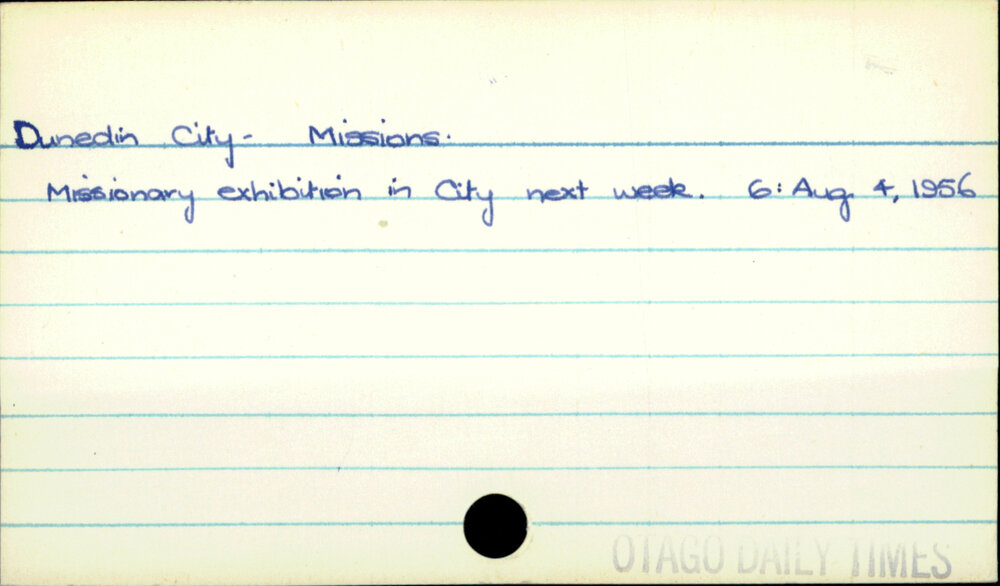 Dunedin City- Missions.
Missionary exhibition in City next week. 6: Aug. 4, 1956
OTAGO DAILY TIMES